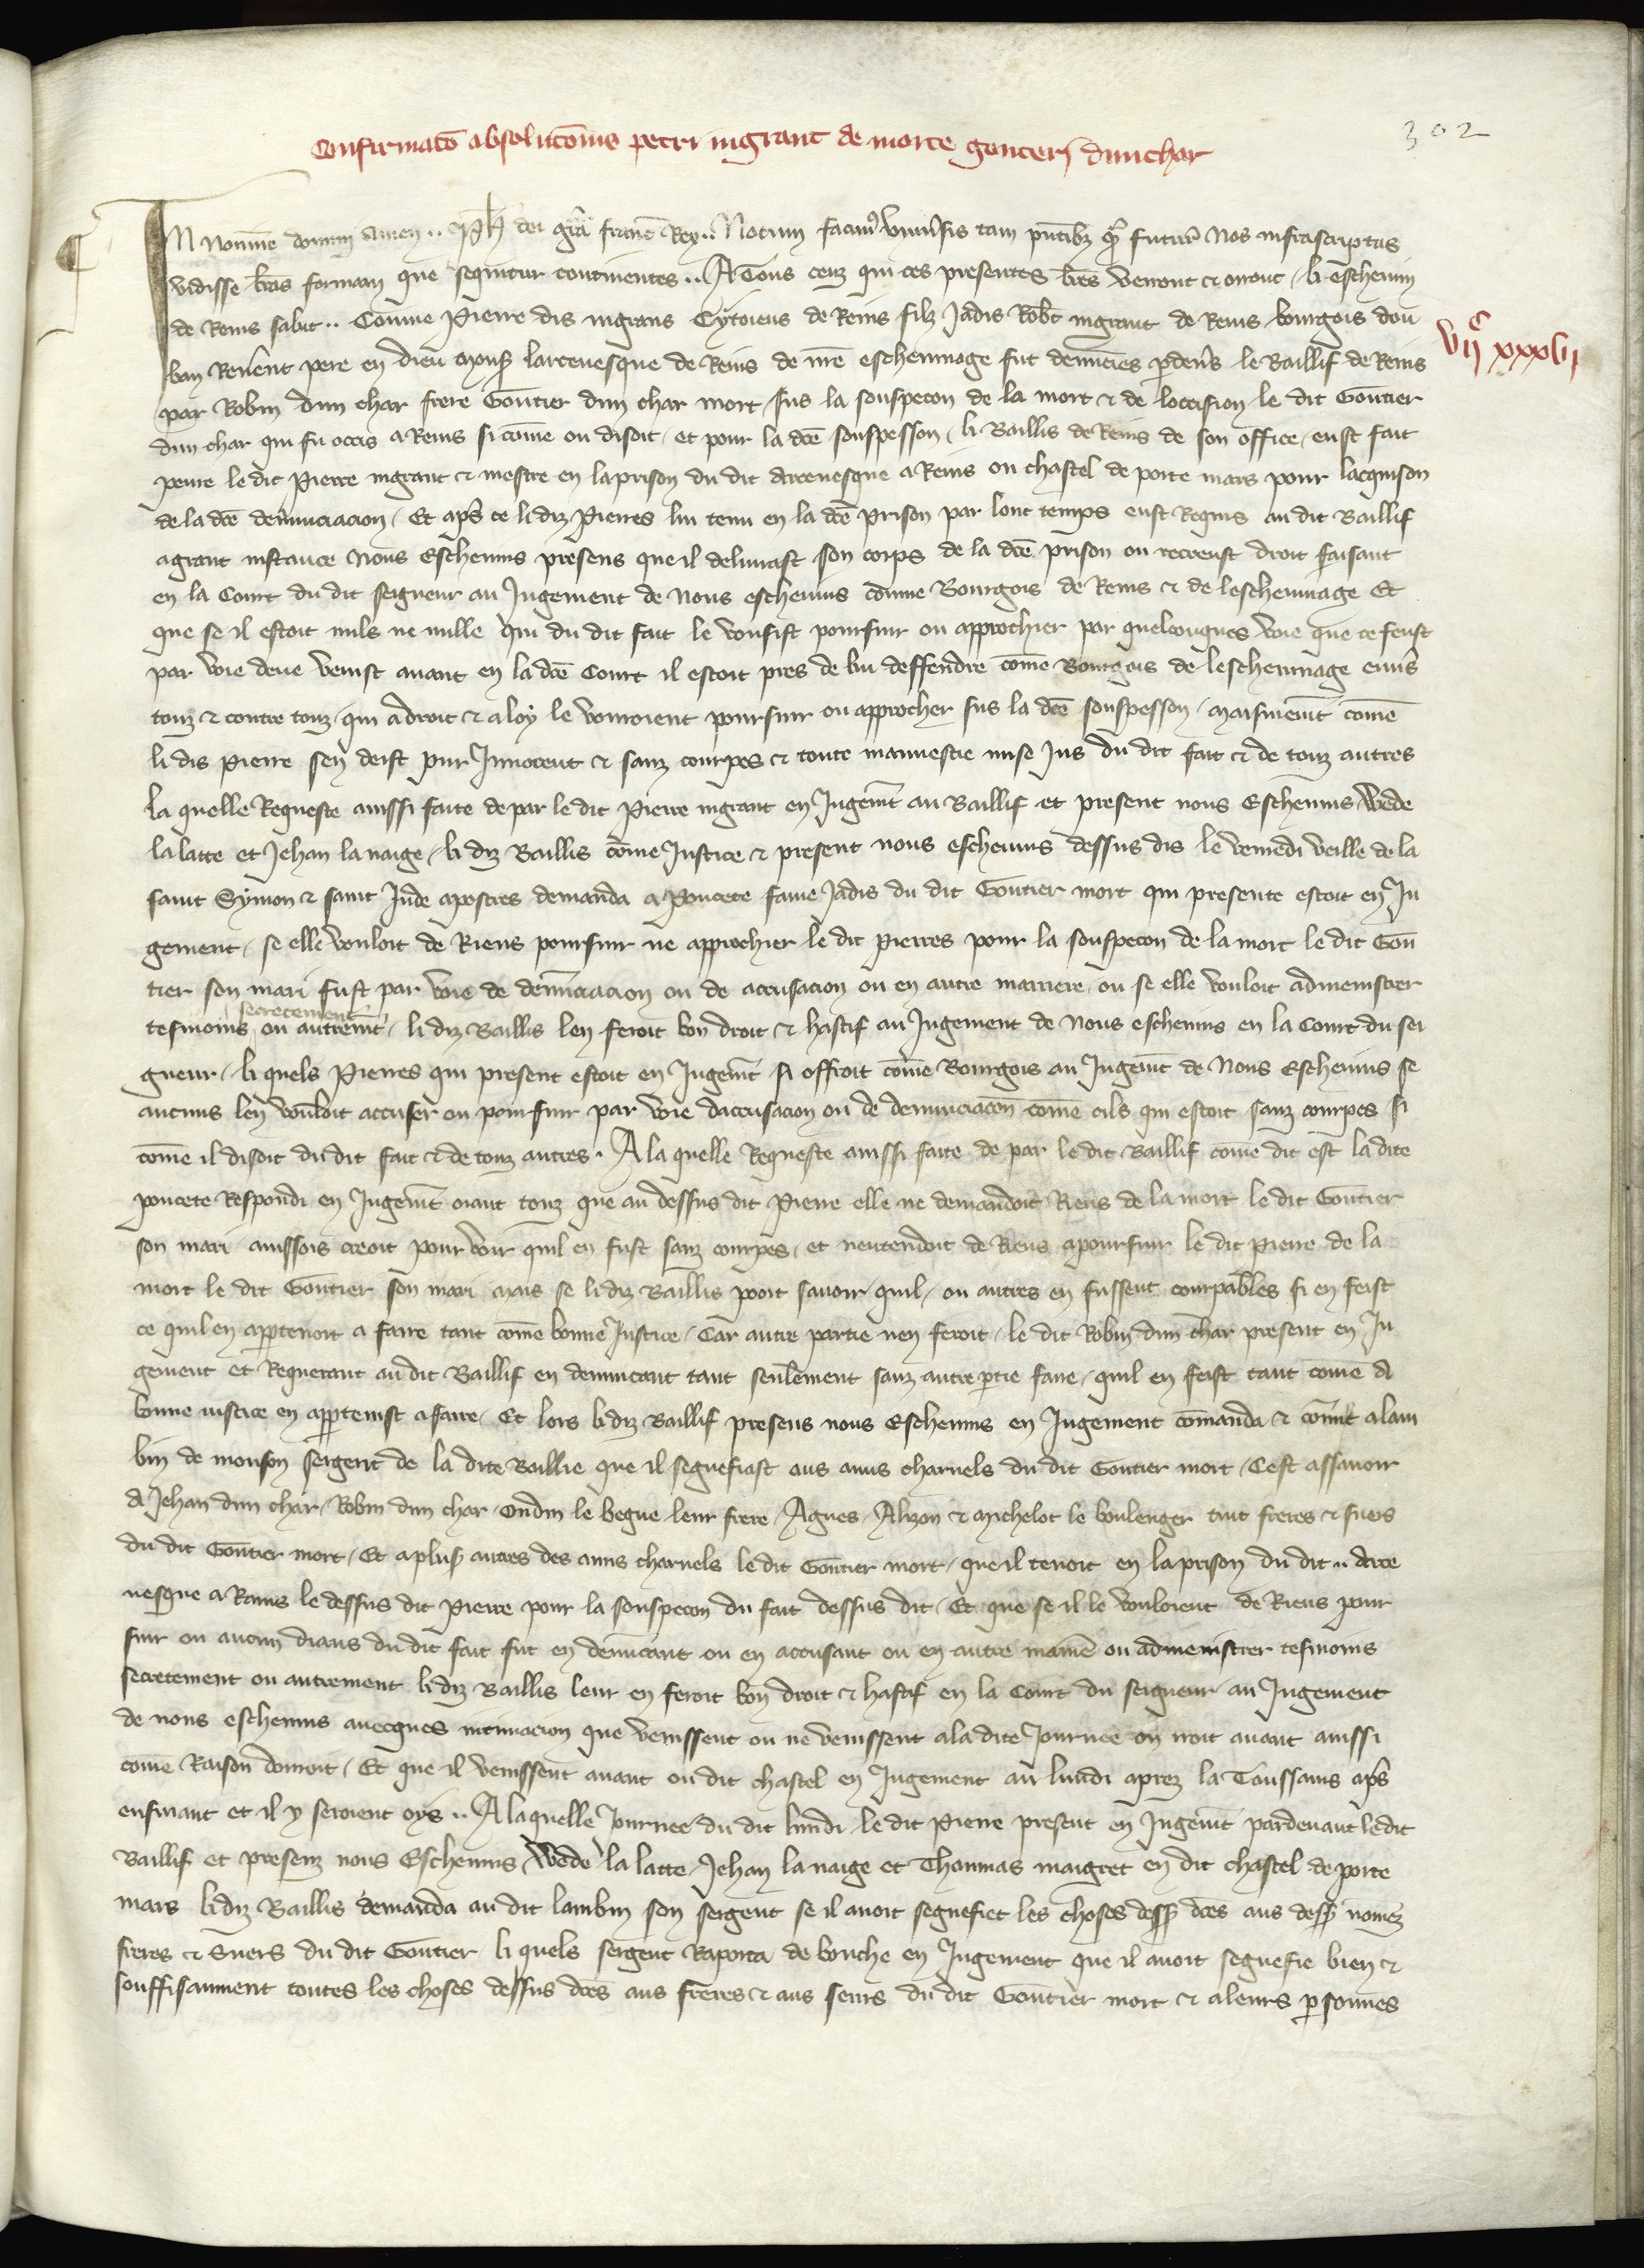 302
Confirmatõ absolutõnis petri ingrant de morte gonteri dunchar
In nomine domini amen .. Ph dei gr̃a franc̃ Rex .. Notum facim9 univ̾sis tam p̃ntib3 q̃ futur̃ Nos infrascriptas
vidisse l̃ras formam que sequitur continentes .. A Tous ceuz qui ces presentes lr̃es verront et orront / li eschevin
de Reins salut .. Comme Pierre dis ingrans Cytoiens de Reins filz Jadis Rob̃t ingrant de Reins bourgois dou
ban Rev̾ent pere en dieu mons̾ larcevesque de Reins de nr̃e eschevinage fut denuncies p̱dev̾s le Baillif de Reins
VIIc XXXVII
par Robin dun char frere Gontier dun char mort / sus la souspecon de la mort et de loccision le dit Gontier
dun char qui fu occis a Reins si cõme on disoit / et pour la dc̃e souspesson / li Baillis de Reins de son office / eust fait
penre le dit Pierre ingrant et mestre en la prison du dit arcevesque a Reins ou chastel de porte mars pour lacquison
de la dc̃e denunciacion / Et ap̃s ce li diz Pierres lui tenu en la dc̃e prison par lonc temps eust Requis au dit Baillif
a grant instance Nous Eschevins presens que il delivrast son corps de la dc̃e prison ou recreust droit faisant
en la Court du dit seigneur au Jugement de Nous eschevins cõme Bourgois de Reins et de leschevinage Et
que se il estoit nuls ne nulle qui du dit fait le vousist poursuir ou approchier par quelconques voie que ce feust
par voie deue venist avant en la dc̃e Court il estoit pres de lui deffendre cõme Bourgois de leschevinage env̾s
touz et contre touz / qui a droit et a loy le vouroient poursuir ou approcher sus la dc̃e souspesson / maismem̃t cõme
li dis Pierre sen deist pur Innocent et sanz courpes et toute mauvestie mise Jus du dit fait et de touz autres
la quelle Requeste ainssi faite de par le dit Pierre ingrant en Jugem̃t au Baillif et present nous Eschevins / Wede
la latte et Jehan la naige / li diz Baillis cõme Justice et present nous eschevins dessus dis le venredi veille de la
saint Symon et saint Jude apostres demanda a Poncete fame Jadis du dit Gontier mort qui presente estoit en Ju
gement / se elle vouloit de Riens poursuir ne approchier le dit Pierres pour la souspecon de la mort le dit Gon
tier son mari fust par voie de denunciacion ou de accusacion ou en autre maniere ou se elle vouloit admenistrer
tesmoins secretement ou autrem̃t / li diz Baillis len feroit bon droit et hastif au Jugement de Nous eschevins en la Court du sei
gneur / li quels Pierres qui present estoit en Jugem̃t si offroit cõme Bourgois au Jugem̃t de Nous Eschevins se
aucuns len vouloit accuser ou poursuir par voie daccusacion ou de denunciacõn cõme cils qui estoit sanz courpes si
cõme il disoit du dit fait et de touz autres . A la quelle Requeste ainssi faite de par le dit Baillif cõme dit est la dite
poncete Respondi en Jugem̃t oiant touz que au dessus dit Pierre elle ne demandoit Riens de la mort le dit Gontier
son mari ainssois creoit pour voir quil en fust sanz courpes / et nentendoit de Riens a poursuir le dit Pierre de la
mort le dit Gontier son mari mais se li diz Baillis pooit savoir / quil / ou autres en fussent courpables si en feist
ce quil en appartenoit a faire tant cõme bonne Justice / Car autre partie nen feroit / le dit Robin dun char present en Ju
gement et Requerant au dit Baillif en denuncant tant seulement sanz autre p̱tie faire / quil en feist tant cõme a
bonne iustice en app̱tenist a faire / Et lors li diz Baillif presens nous Eschevins en Jugement cõmanda et cõmist a lam
bin de monson sergent de la dite Baillie que il segnefiast aus amis charnels du dit Gontier mort / Cest assavoir
a Jehan dun char / Robin dun char / Oudin le begue leur frere / Agnes / Alizon et Michelot le boulenger tuit freres et suers
du dit Gontier mort / Et a plus̾ autres des amis charnels le dit Gontier mort / que il tenoit en la prison du dit .. arce
vesque a Rains le dessus dit Pierre pour la souspecon du fait dessus dit / Et que se il le vouloient de Riens pour
suir ou aucun dians du dit fait fut en denuncant ou en accusant ou en autre maniẽ ou admenistrer tesmoins
secretement ou autrement li diz Baillis leur en feroit bon droit et hastif en la Court du seigneur au Jugement
de nous eschevins avecques intimacion que venissent ou ne venissent a la dite Journee on iroit avant ainssi
cõme Raison donroit / Et que il venissent avant ou dit chastel en Jugement au lundi aprez la Toussains ap̃s
ensivant et il y seroient oys .. A la quelle Journee du dit lundi le dit Pierre present en Jugem̃t pardevant le dit
Baillif et presenz nous Eschevins / Wede la latte / Jehan la naige et Thoumas maigret en dit chastel de porte
mars li diz Baillis demanda au dit lambin son sergent se il avoit segnefiet les choses dess̾ dc̃es aus dess̾ nõmez
freres et Suers du dit Gontier li quels sergent Raporta de bouche en Jugement que il avoit segnefie bien et
souffisanment toutes les choses dessus dc̃es aus freres et aus seurs du dit Gontier mort et a leurs p̱sonnes